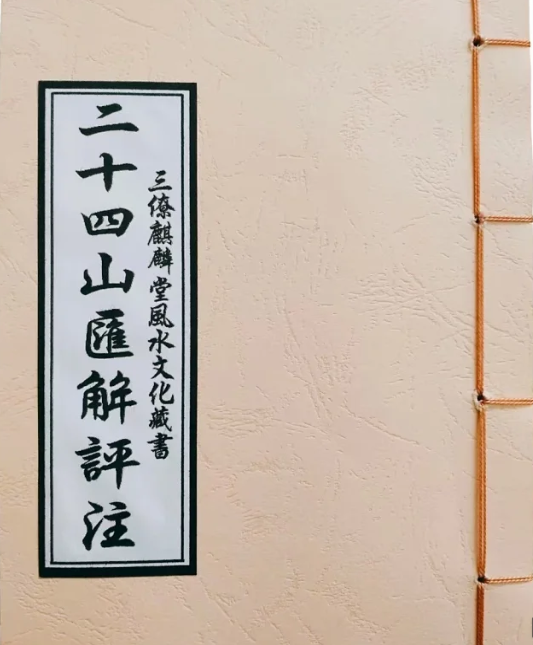 三僚麒麟堂風水文化藏書
二十四山匯解評注